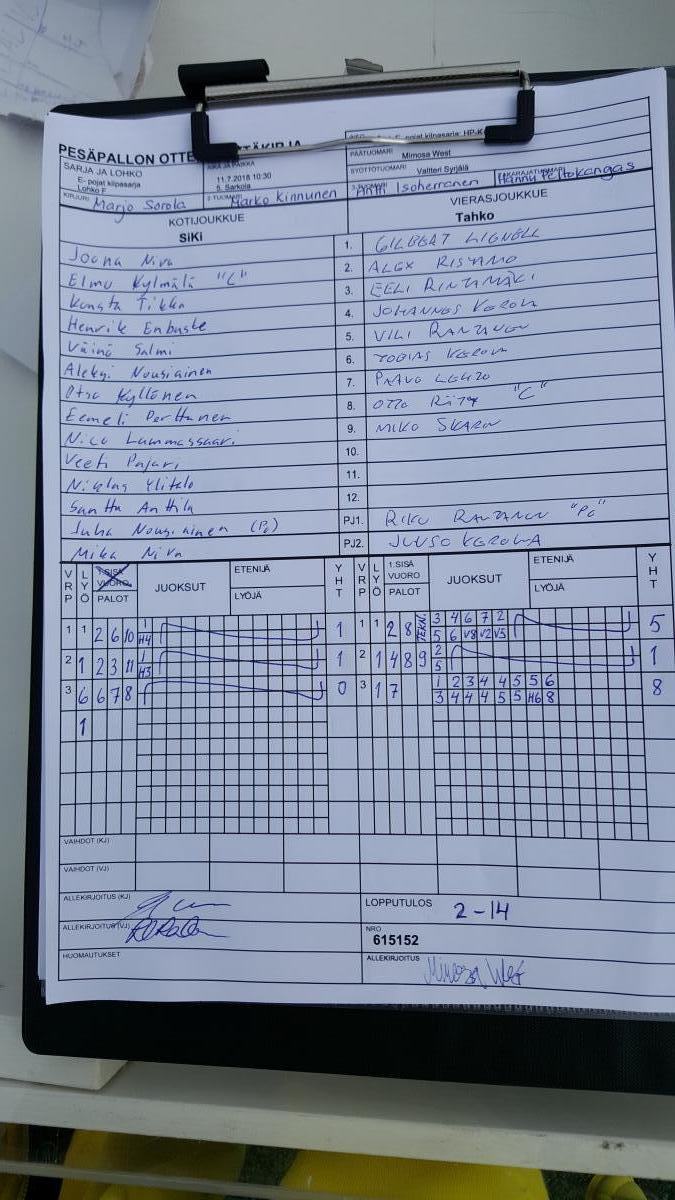 PESÄPALLON OTTE
E- pojat kilpasarja: HP-K
SARJA JA LOHKO
E- pojat kilpasarja
Lohko F
AIKA JA PAIKKA
11.7.2018 10:30
5. Sarkola
PÄÄTUOMARI Mimosa West
SYÖTTÖTUOMARI Valtteri Syrjälä
KIRJURI Marjo Sorola
2-TUOMARI Marko Kinnunen
3-TUOMARI Antti Isoherranen
Hannu Peltokangas
KOTIJOUKKUE
SiKi
VIERASJOUKKUE
Tahko
Joona Niva
1. GILBERT LIGNELL
Elmu Kylmälä "C"
2. ALEX RISTAMO
Konsta Tikka
3. EELI RINTAMÄKI
Henrik Enbuske
4. JOHANNES KEROLA
Väinö Salmi
5. VILI RANTANEN
Aleksi Nousiainen
6. TOBIAS KEROLA
Otso Kyllönen
7. PAAVO LEHTO
Eemeli Perttunen
8. OTTO RÄTY "C"
Nico Lummassaari
9. MIKO SKARN
Veeti Pajari
10.
Niklas Ylitalo
11.
Santtu Anttila
12.
Juha Nousiainen (Pj)
PJ1. RIKU RANTANEN "PJ"
Mika Niva
PJ2. JUUSO KEROLA
VRP LYÖ 1.SISÄ VUORO PALOT JUOKSUT ETENIJÄ LYÖJÄ YHT
VRP LYÖ 1.SISÄ VUORO PALOT JUOKSUT ETENIJÄ LYÖJÄ YHT
1 1 2 6 10 1 1
H4
1 1 2 8 TEKN. 3 4 6 7 2 5
5 6 V8 V2 V3
2 1 2 3 11 1 1
H3
2 1 4 8 9 2 1
5
3 6 6 7 8 0
3 1 7 1 2 3 4 4 5 5 6 8
3 4 4 4 5 5 H6 8
1
VAIHDOT (KJ)
VAIHDOT (VJ)
ALLEKIRJOITUS (KJ)
LOPPUTULOS 2-14
ALLEKIRJOITUS (VJ)
NRO
615152
HUOMAUTUKSET
ALLEKIRJOITUS Mimosa West